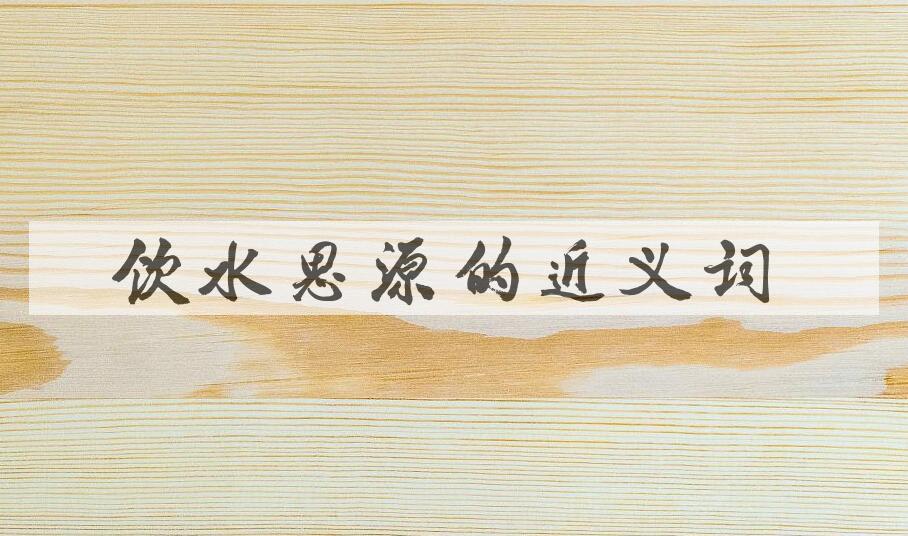 饮水思源的近义词